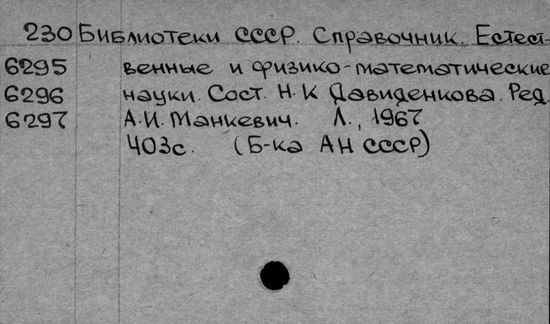 230 Библиотеки СССР. Справочник. Естест-
6295 венные и физико-математические
6296 науки. Сост. Н.К Давиденкова. Ред.
6297 А.И. Манкевич. Л., 1967
403с. (Б-ка АН СССР)